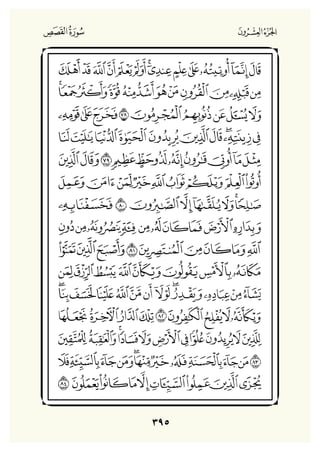 الجُزْءُ العِشْرُونَ سُورَةُ القَصَصِ
قَالَ إِنَّمَآ أُوتِيتُهُۥ عَلَىٰ عِلْمٍ عِندِىٓۚ أَوَلَمْ يَعْلَمْ أَنَّ ٱللَّهَ قَدْ أَهْلَكَ
مِن قَبْلِهِۦ مِنَ ٱلْقُرُونِ مَنْ هُوَ أَشَدُّ مِنْهُ قُوَّةً وَأَكْثَرُ جَمْعًاۚ
وَلَا يُسْـَٔلُ عَن ذُنُوبِهِمُ ٱلْمُجْرِمُونَ ٧٨ فَخَرَجَ عَلَىٰ قَوْمِهِۦ
فِى زِينَتِهِۦۖ قَالَ ٱلَّذِينَ يُرِيدُونَ ٱلْحَيَوٰةَ ٱلدُّنْيَا يَـٰلَيْتَ لَنَا
مِثْلَ مَآ أُوتِىَ قَـٰرُونُ إِنَّهُۥ لَذُو حَظٍّ عَظِيمٍ ٧٩ وَقَالَ ٱلَّذِينَ
أُوتُوا۟ ٱلْعِلْمَ وَيْلَكُمْ ثَوَابُ ٱللَّهِ خَيْرٌ لِّمَنْ ءَامَنَ وَعَمِلَ
صَـٰلِحًاۚ وَلَا يُلَقَّىٰهَآ إِلَّا ٱلصَّـٰبِرُونَ ٨٠ فَخَسَفْنَا بِهِۦ
وَبِدَارِهِ ٱلْأَرْضَ فَمَا كَانَ لَهُۥ مِن فِئَةٍ يَنصُرُونَهُۥ مِن دُونِ
ٱللَّهِ وَمَا كَانَ مِنَ ٱلْمُنتَصِرِينَ ٨١ وَأَصْبَحَ ٱلَّذِينَ تَمَنَّوْا۟
مَكَانَهُۥ بِٱلْأَمْسِ يَقُولُونَ وَيْكَأَنَّ ٱللَّهَ يَبْسُطُ ٱلرِّزْقَ لِمَن
يَشَآءُ مِنْ عِبَادِهِۦ وَيَقْدِرُۖ لَوْلَآ أَن مَّنَّ ٱللَّهُ عَلَيْنَا لَخَسَفَ بِنَاۖ
وَيْكَأَنَّهُۥ لَا يُفْلِحُ ٱلْكَـٰفِرُونَ ٨٢ تِلْكَ ٱلدَّارُ ٱلْـَٔاخِرَةُ نَجْعَلُهَا
لِلَّذِينَ لَا يُرِيدُونَ عُلُوًّا فِى ٱلْأَرْضِ وَلَا فَسَادًاۚ وَٱلْعَـٰقِبَةُ لِلْمُتَّقِينَ
٨٣ مَن جَآءَ بِٱلْحَسَنَةِ فَلَهُۥ خَيْرٌ مِّنْهَاۖ وَمَن جَآءَ بِٱلسَّيِّئَةِ فَلَا
يُجْزَى ٱلَّذِينَ عَمِلُوا۟ ٱلسَّيِّـَٔاتِ إِلَّا مَا كَانُوا۟ يَعْمَلُونَ ٨٤
٣٩٥